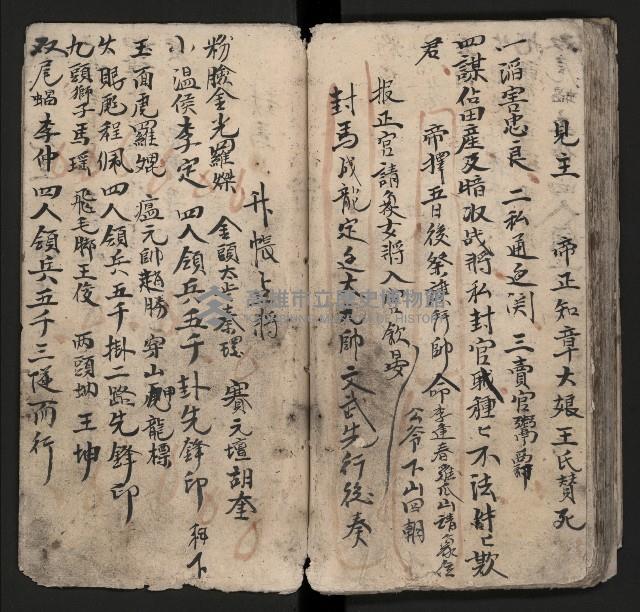 見主　帝正知章大娘王氏賛死
一滔害忠良　二私通辽関　三賣官鬻爵
四謀佔田産及暗取战將私封官職種〻不法件〻欺
君　帝擇五日後祭旗行師　命李進春雞爪山請眾位
公爷下山回朝
报正宫請眾女將入宫飲晏
封馬成龍定辽大元帥　文武先行後奏
升帳〻將
粉臉金光羅燦　金頭太歲秦環　賽元壇胡奎
小温侯李定　四人領兵五千掛先鋒印　拜下
玉面虎羅焜　瘟元帥趙勝　穿山甲龍標
火眼彪程佩　四人領兵五千掛二路先鋒印
九頭獅子馬瑶　飛毛腳王俊　兩頭坤王坤
双尾蝎李仲　四人領兵五千三隊而行
高雄市立歷史博物館
KAOHSIUNG MUSEUM OF HISTORY